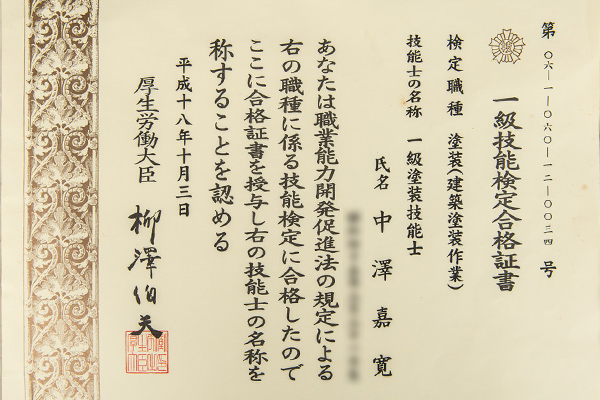 第〇六-一-〇六〇-一二-〇〇三四号
一級技能検定合格証書
検定職種 塗装(建築塗装作業)
技能士の名称 一級塗装技能士
氏名 中澤嘉寛
あなたは職業能力開発促進法の規定による
右の職種に係る技能検定に合格したので
ここに合格証書を授与し右の技能士の名称を
称することを認める
平成十八年十月三日
厚生労働大臣 柳澤伯夫